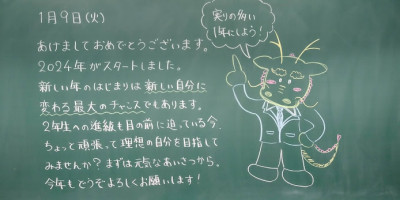 1月9日(火)
あけましておめでとうございます。
2024年がスタートしました。
新しい年のはじまりは新しい自分に
変わる最大のチャンスでもあります。
2年生への進級も目の前に迫っている今、
ちょっと頑張って理想の自分を目指して
みませんか？まずは元気なあいさつから。
今年もどうぞよろしくお願いします！
実りの多い
1年にしよう！